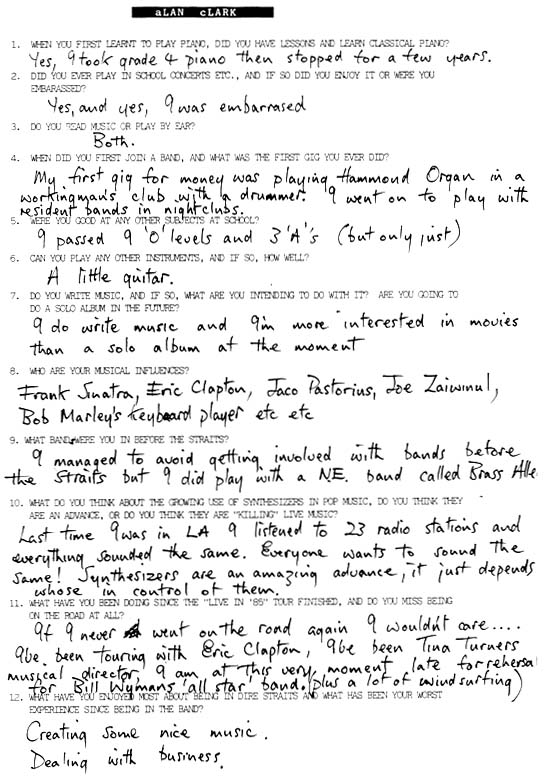 aLAN cLARK
1. WHEN YOU FIRST LEARNT TO PLAY PIANO, DID YOU HAVE LESSONS AND LEARN CLASSICAL PIANO?
Yes, I took grade 4 piano then stopped for a few years.
2. DID YOU EVER PLAY IN SCHOOL CONCERTS ETC., AND IF SO DID YOU ENJOY IT OR WERE YOU
EMBARASSED?
Yes, and yes, I was embarrased
3. DO YOU READ MUSIC OR PLAY BY EAR?
Both.
4. WHEN DID YOU FIRST JOIN A BAND, AND WHAT WAS THE FIRST GIG YOU EVER DID?
My first gig for money was playing Hammond Organ in a
workingman's club with a drummer. I went on to play with
resident bands in nightclubs.
5. WERE YOU GOOD AT ANY OTHER SUBJECTS AT SCHOOL?
I passed 9 'O' levels and 3 'A's (but only just)
6. CAN YOU PLAY ANY OTHER INSTRUMENTS, AND IF SO, HOW WELL?
A little guitar.
7. DO YOU WRITE MUSIC, AND IF SO, WHAT ARE YOU INTENDING TO DO WITH IT? ARE YOU GOING TO
DO A SOLO ALBUM IN THE FUTURE?
I do write music and I'm more interested in movies
than a solo album at the moment
8. WHO ARE YOUR MUSICAL INFLUENCES?
Frank Sinatra, Eric Clapton, Jaco Pastorius, Joe Zaiwinul,
Bob Marley's keyboard player etc etc
9. WHAT BANDS WERE YOU IN BEFORE THE STRAITS?
I managed to avoid getting involved with bands before
the Straits but I did play with a NE. band called Brass Alle
10. WHAT DO YOU THINK ABOUT THE GROWING USE OF SYNTHESIZERS IN POP MUSIC, DO YOU THINK THEY
ARE AN ADVANCE, OR DO YOU THINK THEY ARE "KILLING" LIVE MUSIC?
Last time I was in LA I listened to 23 radio stations and
everything sounded the same. Everyone wants to sound the
same! Synthesizers are an amazing advance, it just depends
whose in control of them.
11. WHAT HAVE YOU BEEN DOING SINCE THE "LIVE IN '85" TOUR FINISHED, AND DO YOU MISS BEING
ON THE ROAD AT ALL?
If I never went on the road again I wouldn't care....
I've been touring with Eric Clapton, I've been Tina Turners
musical director, I am at this very moment late for rehersal
for Bill Wymans 'all star' band. (plus a lot of windsurfing)
12. WHAT HAVE YOU ENJOYED MOST ABOUT BEING IN DIRE STRAITS AND WHAT HAS BEEN YOUR WORST
EXPERIENCE SINCE BEING IN THE BAND?
Creating some nice music.
Dealing with business.